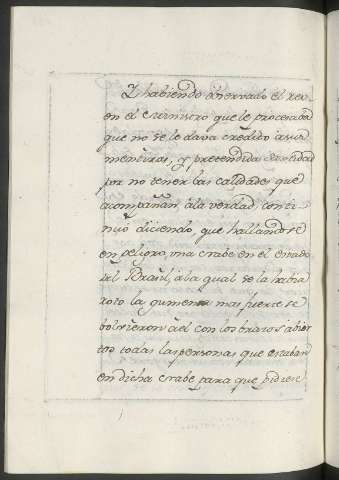 Y habiendo observado el reo
en el ministro que le procesaba
que no se le dava credito a sus
mentiras, y pretendida santidad
por no tener las calidades que
acompañan, a la verdad, conti-
nuó diciendo, que hallandose
en peligro, una nabe en el estado
del Brasil, a la qual se la habia
roto la gumena mas fuerte se
bolvieron a el con los brazos abier
tos todas las personas que estaban
en dicha nabe para que pidiese